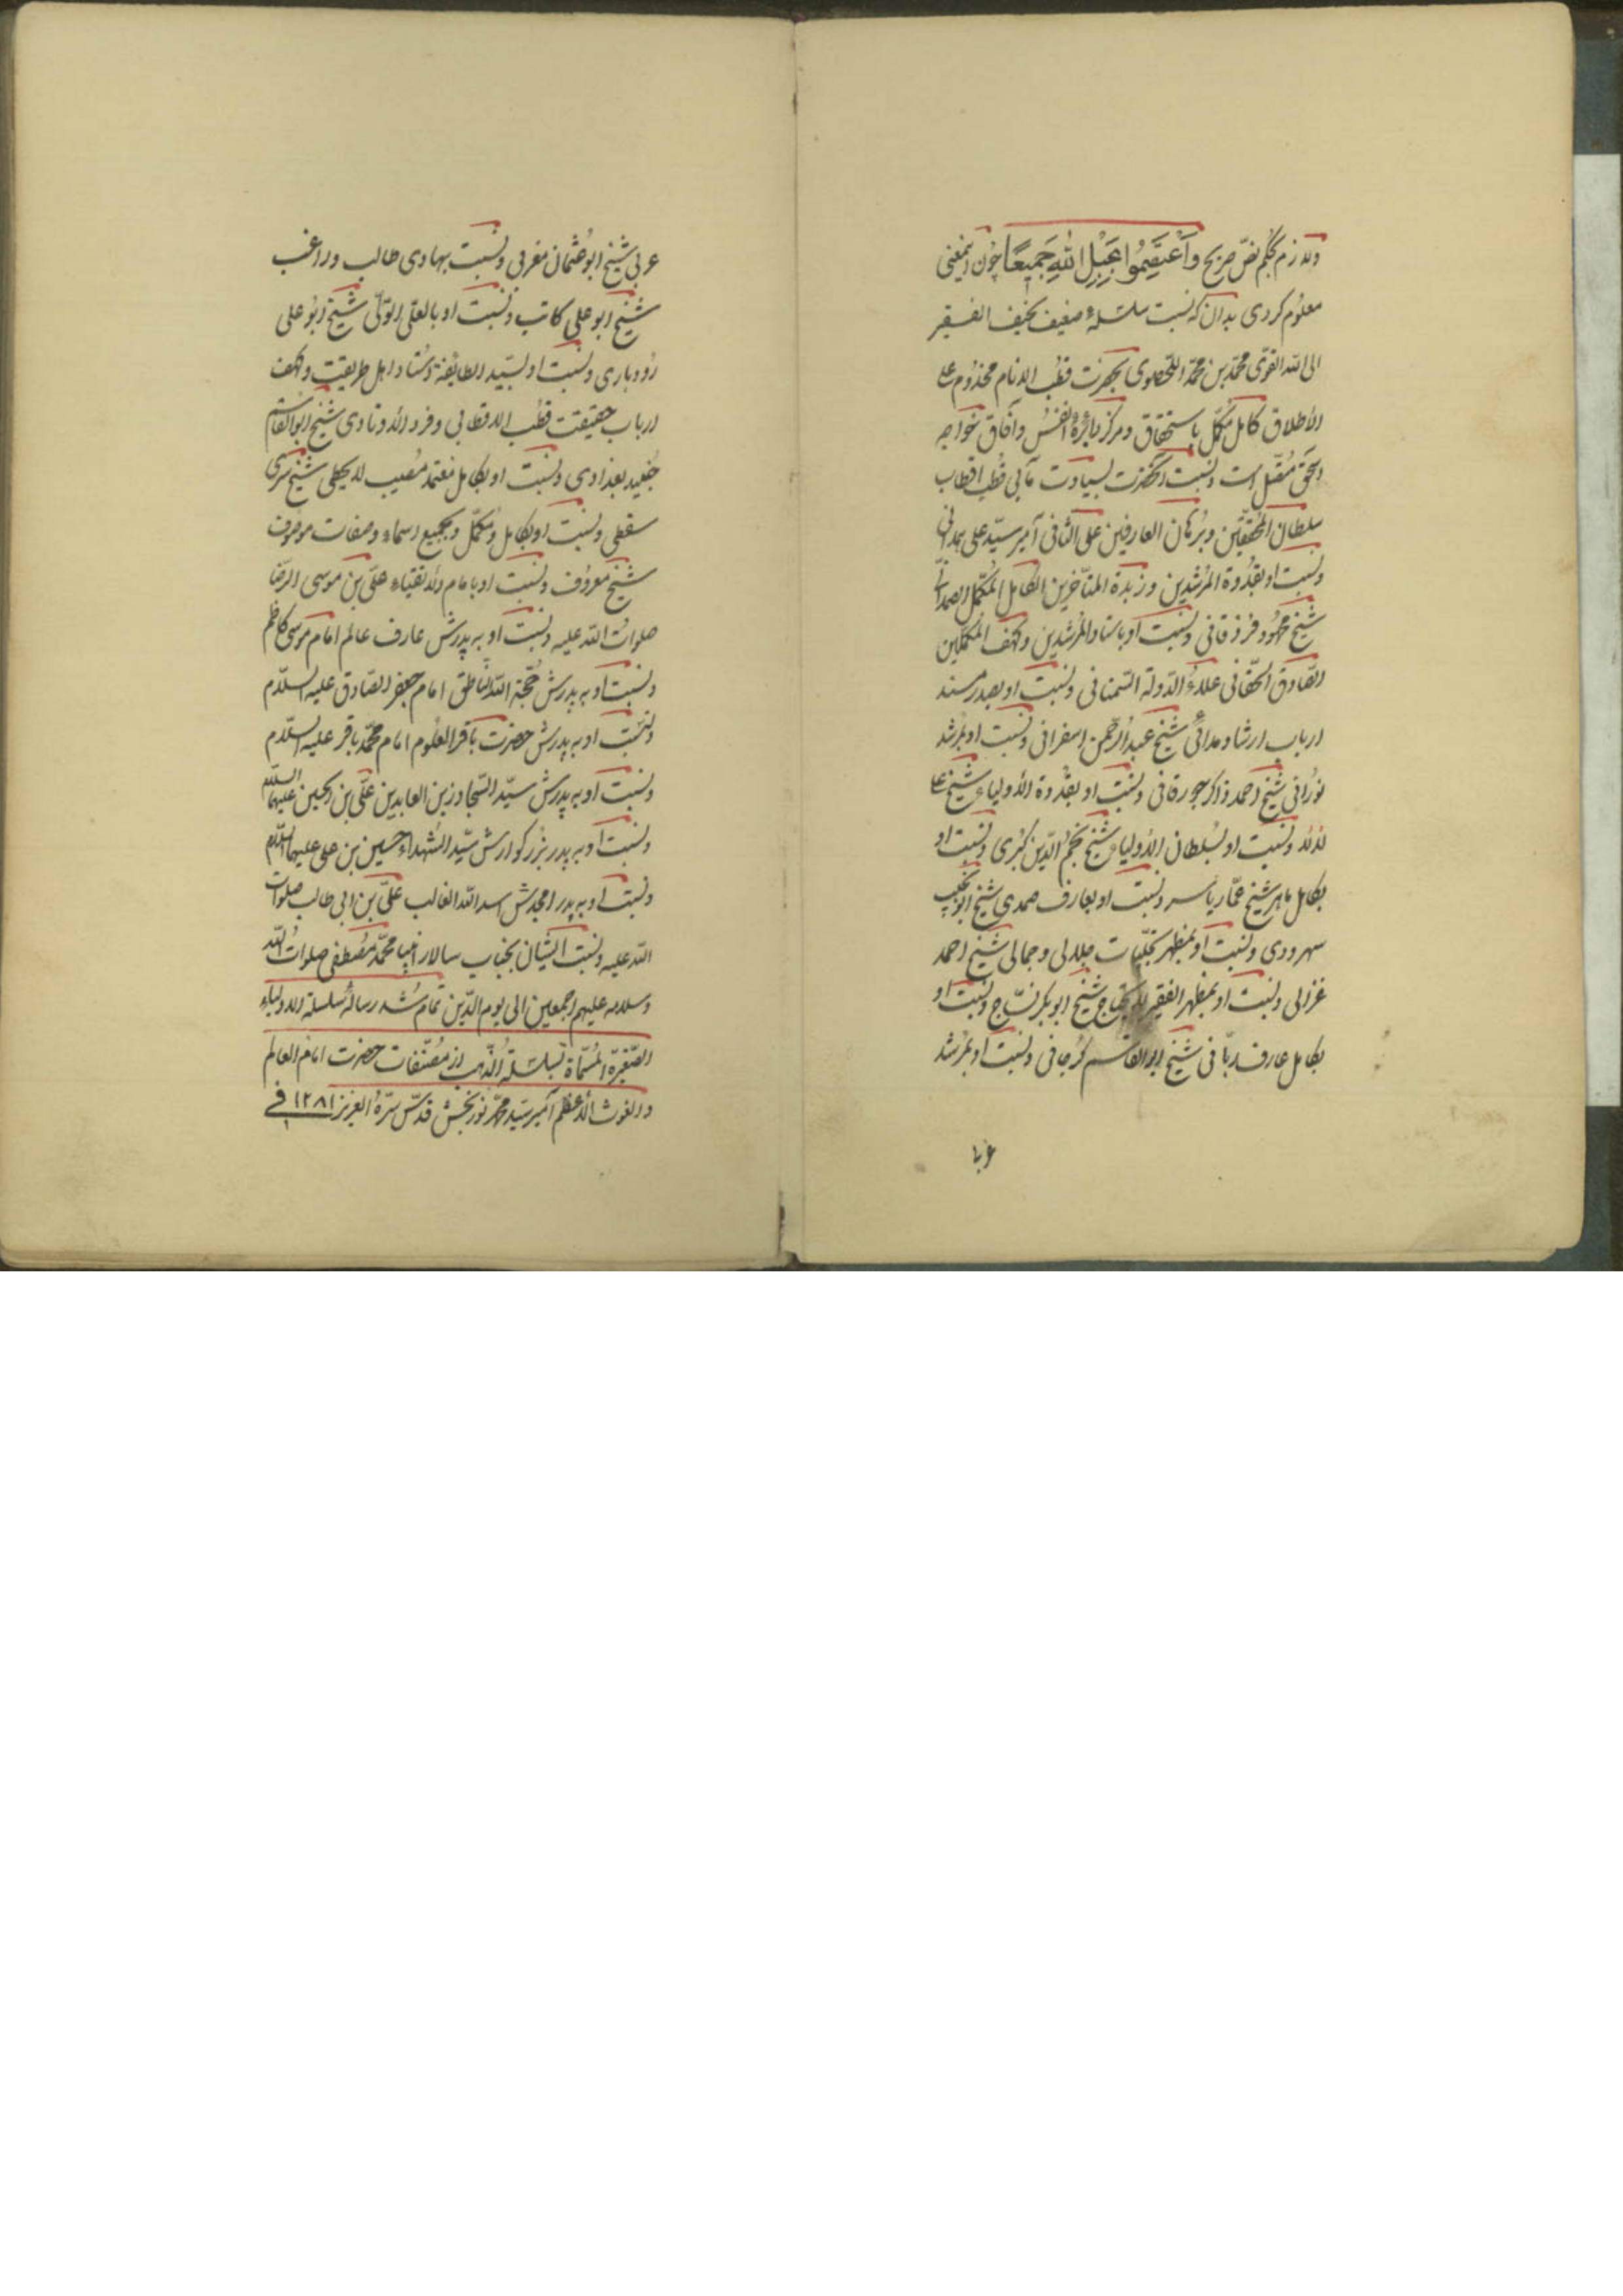 ولازم بحکم نصّ صریح وَاعْتَصِمُوا بِحَبْلِ اللهِ جَمِیعًا چون اینمعنی
معلوم کردی بدان که نسبت سلسلۀ ضعیف نحیف الفقیر
الی الله القویّ محمّد بن محمّد اللحصاوی بحضرت قطب الانام مخدوم علی
الأطلاق کامل مکمّل باستحقاق ومرکز دایرۀ انفس وآفاق خواجه
اسحق است ونسبت آنحضرت بسیادت مآبی قطب اقطاب
سلطان المحققین وبرهان العارفین علی الثانی امیر سیّد علی همدانی
ونسبت او بقدوة المرشدین وزبدة المتأخرین الکامل المکمّل الصمدانی
شیخ محمود مزدقانی ونسبت او باستاد المرشدین وکهف المکملین
الصّادق الحقّانی علاءُ الدّولة السّمنانی ونسبت او بصدر مسند
ارباب ارشاد شیخ عبد الرّحمن اسفرانی ونسبت او بمرشد
نورانی شیخ احمد ذاکر جورقانی ونسبت او بقدوة الأولیاء شیخ علی
لالا ونسبت او بسلطان الأولیاء شیخ نجم الدّین کبری ونسبت او
بکامل ماهر شیخ عمّار یاسر ونسبت او بعارف صمدی شیخ ابو نجیب
سهروردی ونسبت او بمظهر تجلّیات جلالی وجمالی شیخ احمد
غزالی ونسبت او بمظهر الفقیر لا یحتاج شیخ ابوبکر نسّاج ونسبت او
بکامل عارف ربّانی شیخ ابو القاسم کرجانی ونسبت او بمرشد
عربی
عربی شیخ ابو عثمان مغربی ونسبت بهادی طالب وراغب
شیخ ابو علی کاتب ونسبت او بالعلی الولیّ شیخ ابو علی
رودباری ونسبت او بسیّد الطایفة استاد اهل طریقت وکهف
ارباب حقیقت قطب الاقطابی وفرد الاوتادی شیخ ابو القاسم
جنید بغدادی ونسبت او بکامل معتمد شیخ سری
سقطی ونسبت او بکامل ومکمّل وبجمیع اسماء وصفات موصوف
شیخ معروف ونسبت او بامام الأتقیاء علیّ بن موسی الرضا
صلوات الله علیه ونسبت او به پدرش عارف عالم امام موسی کاظم
ونسبت او به پدرش حجّة الله الناطق امام جعفر الصّادق علیه السّلام
ونسبت او به پدرش حضرت باقر العلوم امام محمّد باقر علیه السّلام
ونسبت او به پدرش سیّد السّجاد زین العابدین علیّ بن الحسین علیهما السلام
ونسبت او به پدر بزرکوارش سیّد الشهداء حسین بن علی علیهما السّلام
ونسبت او به پدر امجدش اسد الله الغالب علیّ بن ابی طالب صلوات
الله علیه ونسبت ایشان بجناب سالار انبیا محمّد مصطفی صلوات الله
وسلامه علیهم اجمعین الی یوم الدّین تمام شد رسالۀ سلسلة الاولیاء
الصّغیرة المسمّاة بسلسلة الذّهب از مصنّفات حضرت امام العالم
والغوث الأعظم امیر سیّد محمّد نوربخش قدّس سرّه العزیز ١٢٨١ فی